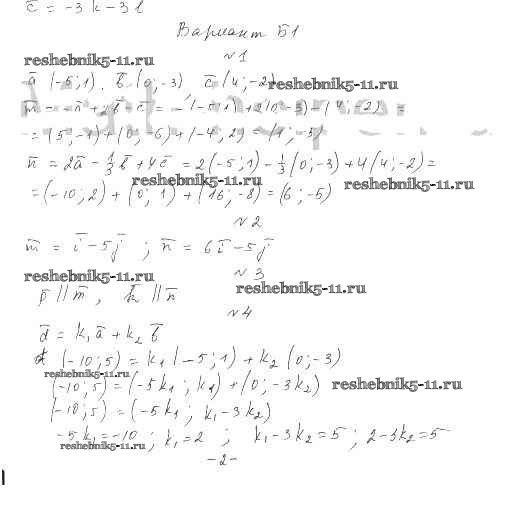 c̄ = -3k - 3l
Вариант Б1
№1
reshebnik5-11.ru
ā (-5;1), b̄ (0;-3), c̄ (4;-2)
reshebnik5-11.ru
m̄ = -ā + 2b̄ - c̄ = -(-5;1) + 2(0;-3) - (4;-2) =
= (5;-1) + (0;-6) + (-4;2) = (1;-5)
n̄ = 2ā - 1/3 b̄ + 4c̄ = 2(-5;1) - 1/3 (0;-3) + 4(4;-2) =
reshebnik5-11.ru
reshebnik5-11.ru
= (-10;2) + (0;1) + (16;-8) = (6;-5)
№2
m̄ = ī - 5j̄ ; n̄ = 6ī - 5j̄
reshebnik5-11.ru
№3
reshebnik5-11.ru
p̄ || m̄, k̄ || n̄
№4
d̄ = k₁ā + k₂b̄
(-10;5) = k₁(-5;1) + k₂(0;-3)
reshebnik5-11.ru
(-10;5) = (-5k₁; k₁) + (0;-3k₂)
reshebnik5-11.ru
(-10;5) = (-5k₁; k₁-3k₂)
-5k₁ = -10; k₁ = 2 ; k₁-3k₂ = 5; 2-3k₂ = 5
reshebnik5-11.ru
-2-